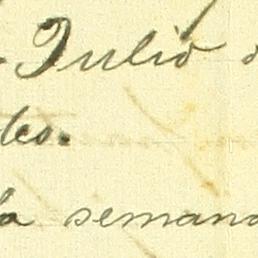 Julio
la semana